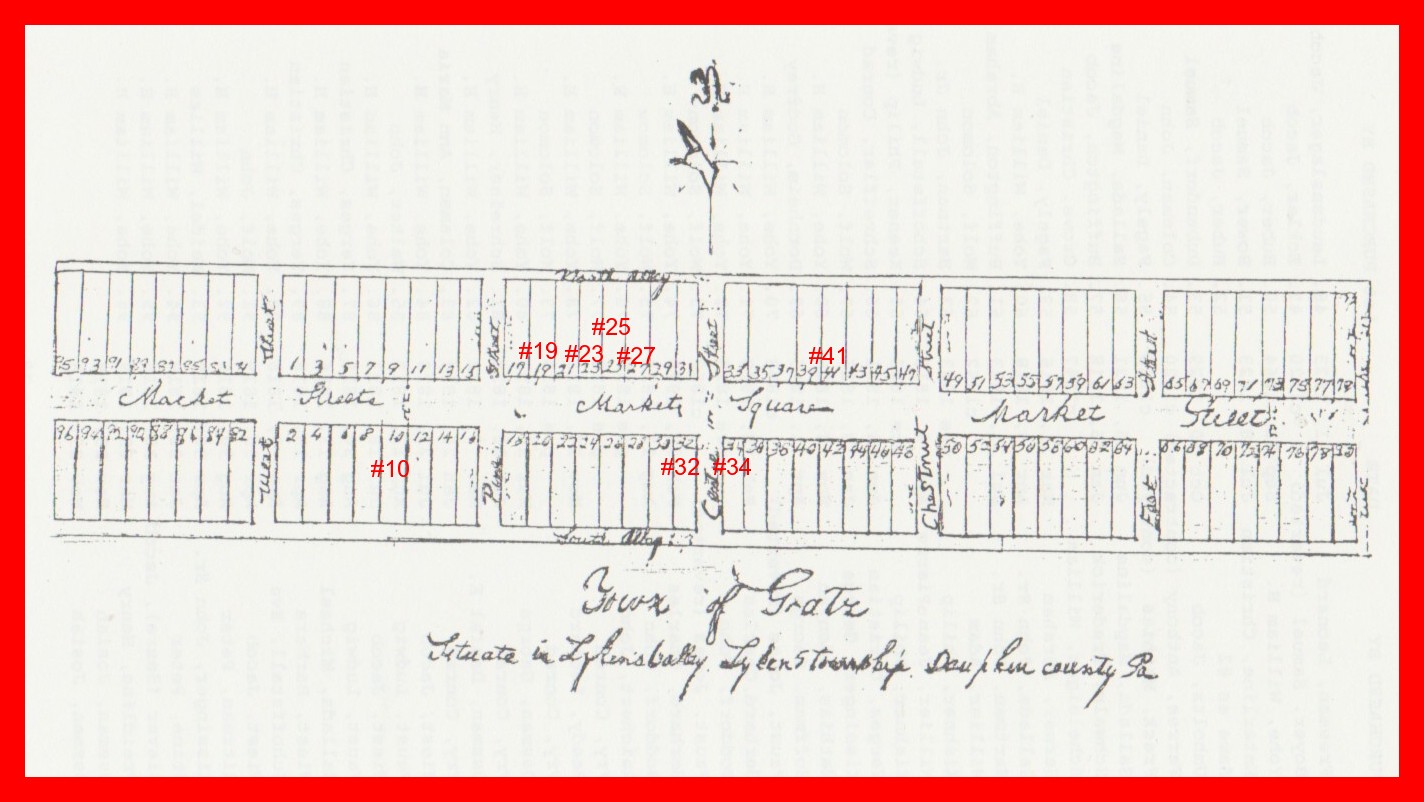 North Alley
#25
#19 #23 #27 #41
1 3 5 7 9 11 13 15 17 19 21 23 25 27 29 31 33 35 37 39 41 43 45 47 49 51 53 55 57 59 61 63 65 67 69 71 73 75 77
Street Street Street Street
Market Streets Market Square Market Street
96 94 92 90 88 86 84 82 2 4 6 8 10 12 14 16 18 20 22 24 26 28 30 32 34 36 38 40 42 44 46 48 50 52 54 56 58 60 62 64 66 68 70 72 74 76 78 80
West Pine Centre Chestnut East
#10 #32 #34
South Alley
Town of Gratz
Situate in Lykens Valley, Lykens township. Dauphin county Pa